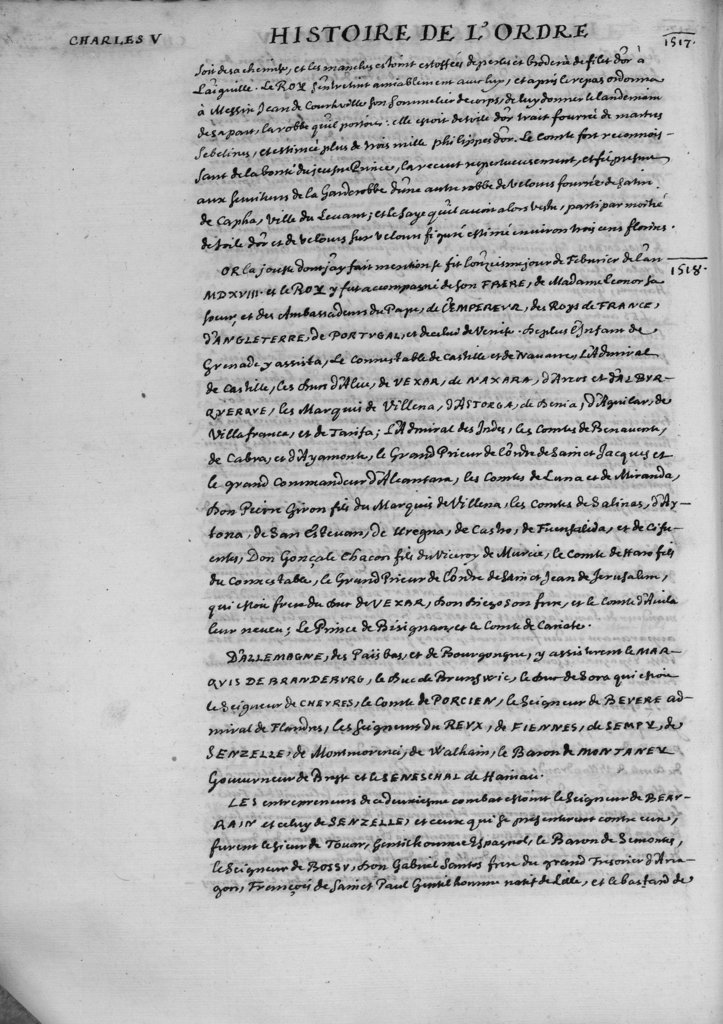 CHARLES V
HISTOIRE DE L'ORDRE
1517.
soit de sa chemise, et les manches estoint estoffées de perles et broderie de filet d'or à
l'aiguille. Le ROY s'entretint amiablement avec luy, et après le repas ordonna
à Messire Jean de Courteville son sommelier de corps, de luy donner le lendemain
de sa part, la robbe qu'il portoit: elle estoit de toile d'or trait fourrée de martres
sebelines, et estimée plus de trois mille philippes d'or. Le Comte fort reconnois-
sant de la bonté du jeusne Prince, la receut respectueusement, et fit present
aux serviteurs de la Garderobbe d'une autre robbe de velours fourrée de satin
de Capha, ville du Levant; et le saye qu'il avoit alors vestu, parti par moitié
de toile d'or et de velours sur velours figuré estimé environ trois cens florins.
OR la jouste dont j'ay fait mention se fit l'onziesme jour de Febvrier de l'an
1518.
MDXVIII. et le ROY y fut accompagné de son FRERE, de Madame Leonor sa
soeur, et des Ambassadeurs du Pape, de L'EMPEREUR, des Roys de FRANCE,
D'ANGLETERRE, de PORTVGAL, et de celui de Venise. De plus l'Infant de
Grenade y assista, Le Connestable de Castille et de Navarre, L'Admiral
de Castille, les Ducs d'Alve, de VEXAR, de NAXARA, d'Arcos et D'ALBVR-
QVERQVE, les Marquis de Villena, D'ASTORGA, de Denia, d'Aguilar, de
Villafranca, et de Tarifa; L'Admiral des Indes, les Comtes de Benavente,
de Cabra, et d'Ayamonte, le Grand Prieur de l'Ordre de Sainct Jacques et
le grand Commandeur d'Alcantara, les Comtes de Luna et de Miranda,
Don Pierre Giron fils du Marquis de Villena, les Comtes de Salinas, d'Ay-
tona, de San Estevan, de Uregna, de Castro, de Fuensalida, et de Cifu-
entes, Don Gonçale Chacon fils du Viceroy de Murcie, le Comte de Haro fils
du Connestable, le Grand Prieur de l'Ordre de Sainct Jean de Jerusalem,
qui estoit frere du Duc de VEXAR, Don Diego son frere, et le Comte d'Avila
leur neveu; Le Prince de Bisignan, et le Comte de Cariate.
D'ALLEMAGNE, des Païs bas, et de Bourgongne, y assisterent le MAR-
QVIS DE BRANDEBVRG, le Duc de Brunswic, le Duc de Sora qui estoit
le Seigneur de CHEVRES, le Comte de PORCIEN, le Seigneur de BEVERE ad-
miral de Flandres, les Seigneurs du REVX, de FIENNES, de SEMPY, de
SENZELLE, de Montmorenci, de Walhain, le Baron de MONTANEY
Gouverneur de Bresse et le SENESCHAL de Hainau.
LES entrepreneurs de ce deuxiesme combat estoint le Seigneur de BEAV-
RAIN et celuy de SENZELLE, et ceux qui se presenterent contre eux,
furent le sieur de Tovar, Gentilhomme Espagnol, le Baron de Semontes,
le Seigneur de BOSSV, Don Gabriel Santos frere du grand Tresorier d'Ara-
gon, François de Sainct Paul Gentilhomme natif de Lille, et le bastard de